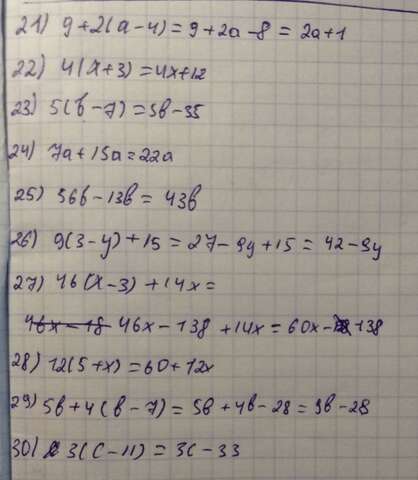 21) 9+2(a-4)=9+2a-8=2a+1
22) 4(x+3)=4x+12
23) 5(b-7)=5b-35
24) 7a+15a=22a
25) 56b-13b=43b
26) 9(3-y)+15=27-9y+15=42-9y
27) 46(x-3)+14x=
46x-138+14x=60x-138
28) 12(5+x)=60+12x
29) 5b+4(b-7)=5b+4b-28=9b-28
30) 3(c-11)=3c-33